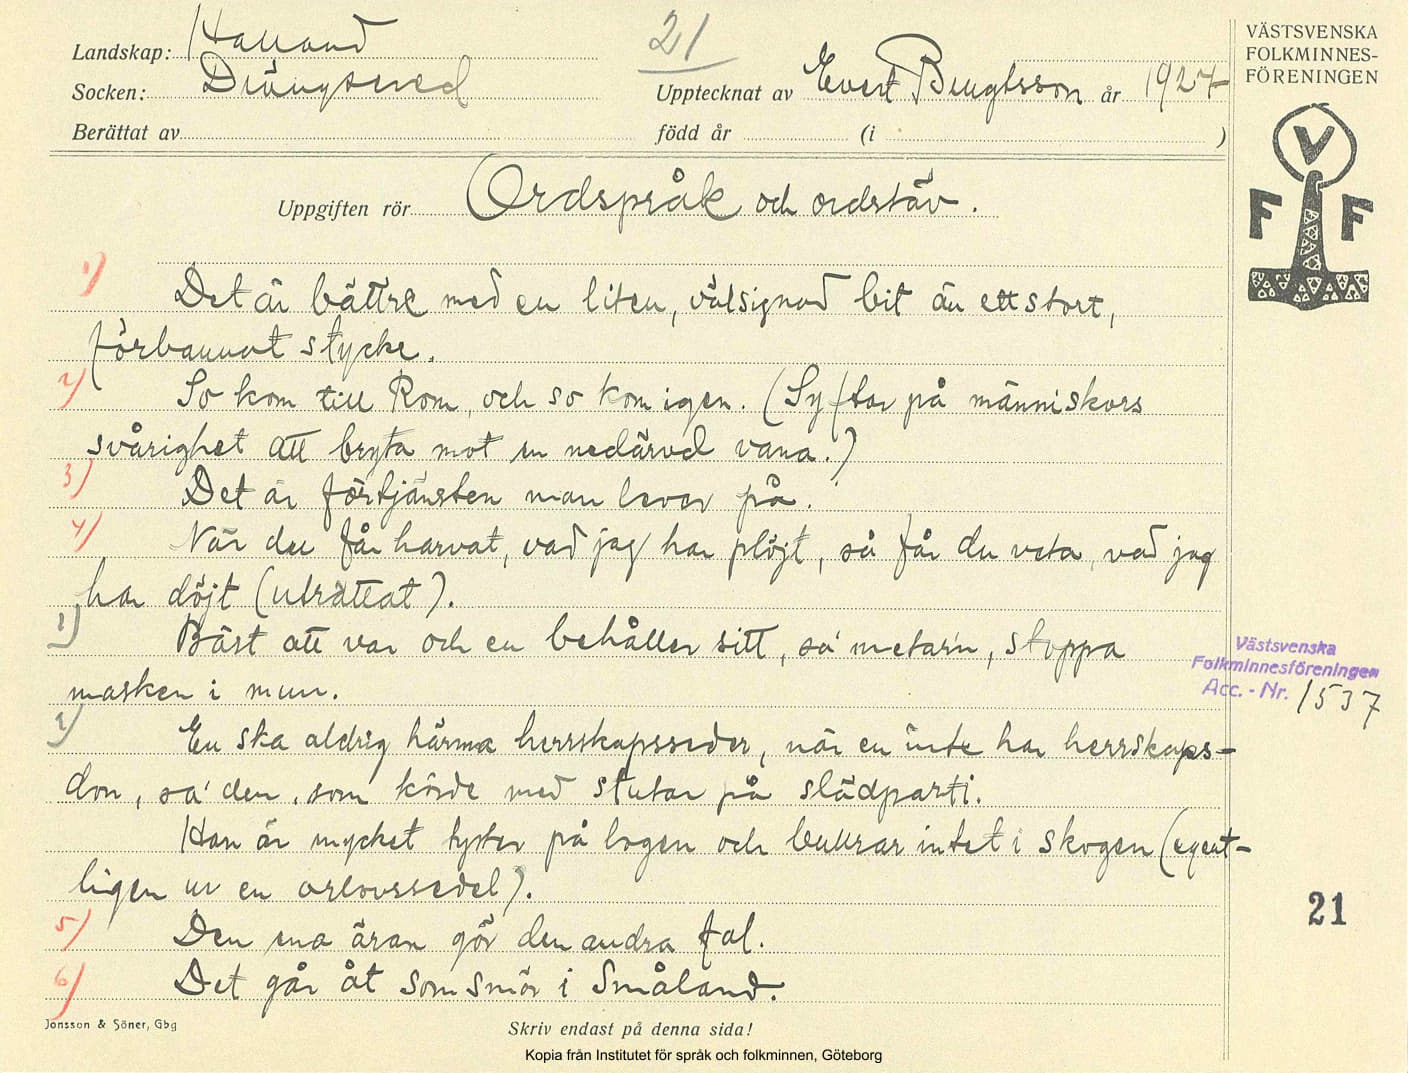 Landskap: Halland
Socken: Drängsered
Berättat av
21
Upptecknat av Evert Bengtsson år 1927
född år (i )
VÄSTSVENSKA
FOLKMINNES-
FÖRENINGEN
V
F F
Uppgiften rör Ordspråk och ordstäv.
1) Det är bättre med en liten, välsignad bit än ett stort,
förbannat stycke.
2) So kom till Rom, och so kom igen. (Syftar på människors
svårighet att bryta mot en nedärvd vana.)
3) Det är förtjänsten man lever på.
4) När du får harvat, vad jag har plöjt, så får du veta, vad jag
har döjt (uträttat).
1) Bäst att var och en behåller sitt, sa' metar'n, stoppa
masken i mun.
2) En ska aldrig härma herrskapsseder, när en inte har herrskaps-
don, sa' den, som körde med stutar på slädparti.
Han är mycket tyster på logen och bullrar intet i skogen (egent-
ligen ur en orlovssedel).
5) Den ena äran gör den andra fal.
6) Det går åt som smör i Småland.
Västsvenska
Folkminnesföreningen
Acc.-Nr. 1537
21
Jonsson & Söner, Gbg
Skriv endast på denna sida!
Kopia från Institutet för språk och folkminnen, Göteborg